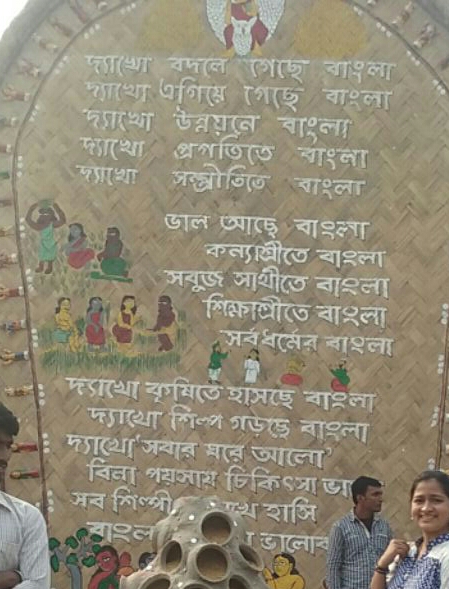 দ্যাখো বদলে গেছে বাংলা
দ্যাখো এগিয়ে গেছে বাংলা
দ্যাখো উন্নয়নে বাংলা
দ্যাখো প্রগতিতে বাংলা
দ্যাখো সম্প্রীতিতে বাংলা
ভাল আছে বাংলা
কন্যাশ্রীতে বাংলা
সবুজ সাথীতে বাংলা
শিক্ষাশ্রীতে বাংলা
সর্বধর্মের বাংলা
দ্যাখো কৃষিতে হাসছে বাংলা
দ্যাখো শিল্প গড়ছে বাংলা
দ্যাখো 'সবার ঘরে আলো'
বিনা পয়সায় চিকিৎসা
সব শিল্পী হাসি